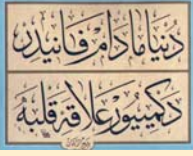 دنيا مادام فانيدر
دكمييور علاقهٔ قلبه